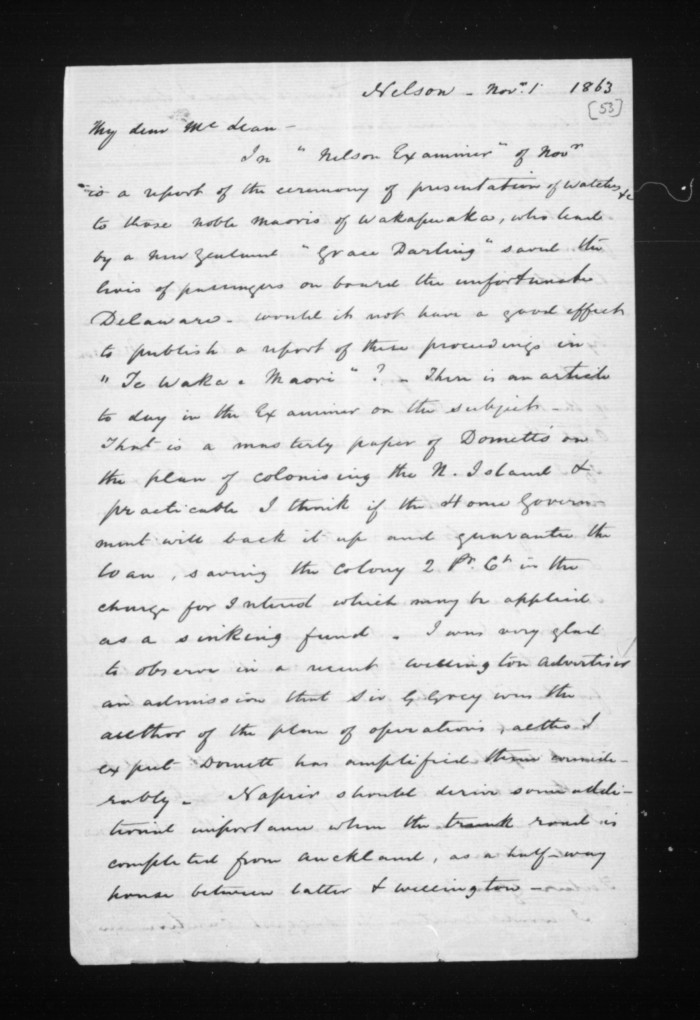 Nelson - Novr. 1 1863
[53]
My dear Mc Lean -
In "Nelson Examiner" of Novr
is a report of the ceremony of presentation of watches &c
to those noble Maoris of Wakapuaka, who lead
by a New Zealand "Grace Darling" saved the
lives of passengers on board the unfortunate
Delaware - would it not have a good effect
to publish a report of these proceedings in
"Te Waka o Maori"? - There is an article
to day in the Examiner on the subject -
That is a masterly paper of Dometts on
the plan of colonising the N. Island &
practicable I think if the Home Govern
ment will back it up and guarantee the
loan, saving the colony 2 Pr. Ct in the
charge for Interest which may be applied
as a sinking fund. I was very glad
to observe in a recent Wellington Advertiser
an admission that Sir G Grey was the
author of the plan of operations, altho I
expect Domett has amplified them conside-
rably - Napier should derive some addi-
tional importance when the trunk road is
completed from Auckland, as a half-way
house between latter & Wellington -